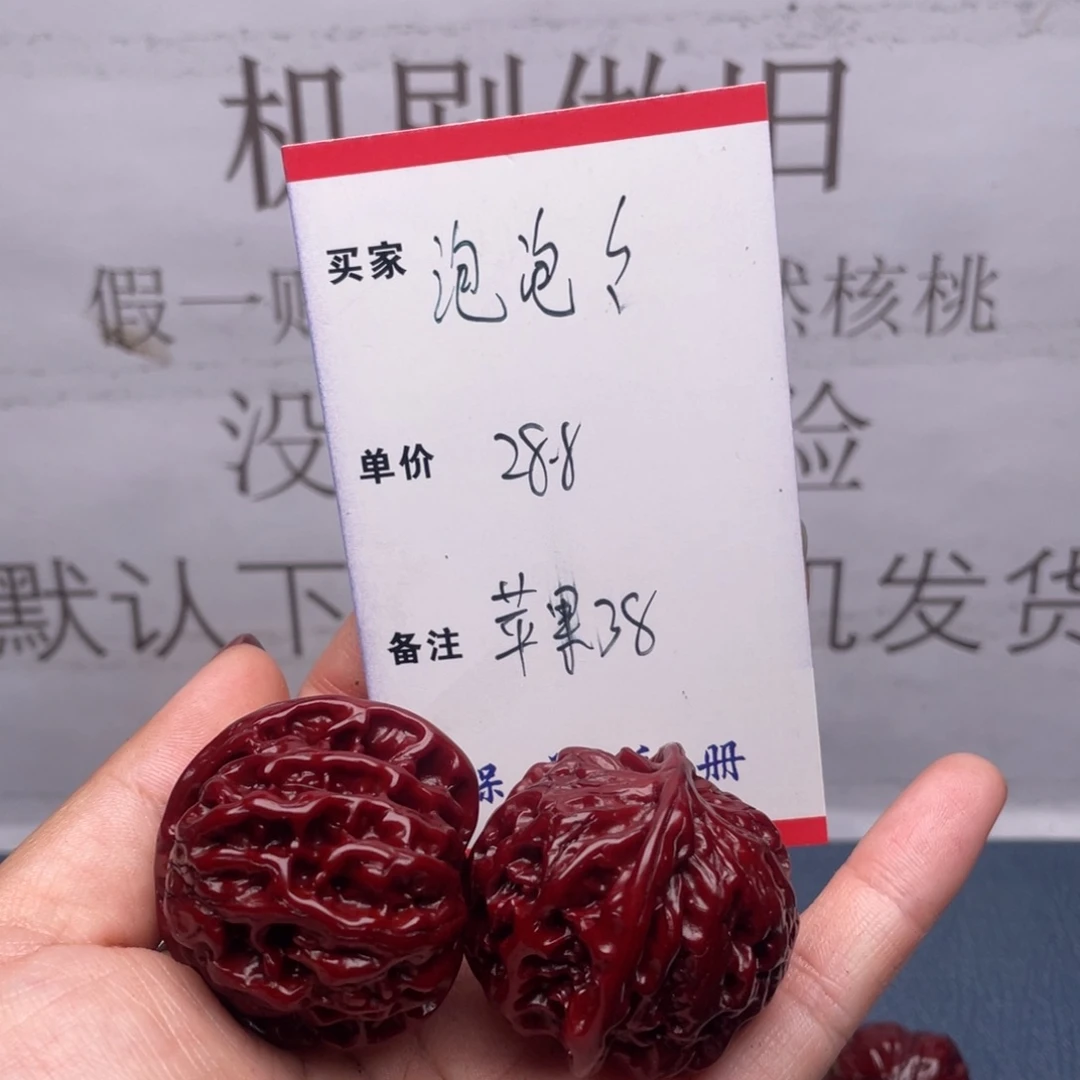 机刷做旧
假一 然核桃
没 险
默认下 机发货
买家 泡泡
单价 28.8
备注 苹果38
保 册